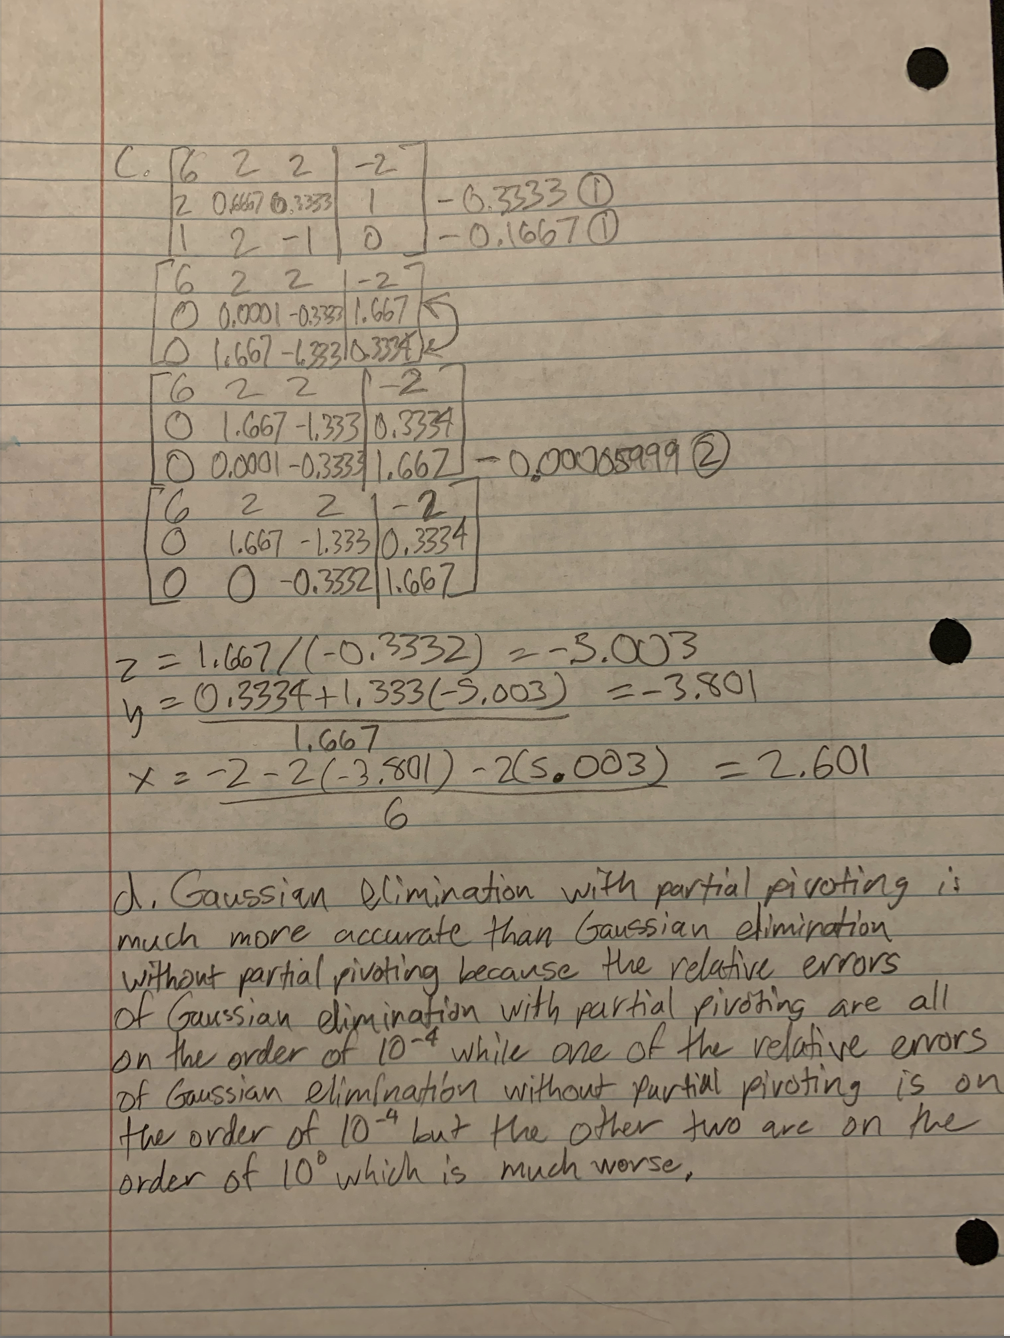 C. [6 2 2 | -2]
[2 0.6667 0.3333 | 1] - 0.3333 ①
[1 2 -1 | 0] - 0.1667 ①
[6 2 2 | -2]
[0 0.0001 -0.3333 | 1.667]
[0 1.667 -1.333 | 0.3334]
[6 2 2 | -2]
[0 1.667 -1.333 | 0.3334]
[0 0.0001 -0.3333 | 1.667] - 0.00005999 ②
[6 2 2 | -2]
[0 1.667 -1.333 | 0.3334]
[0 0 -0.3332 | 1.667]
z = 1.667/(-0.3332) = -5.003
y = 0.3334+1.333(-5.003) = -3.801
1.667
x = -2-2(-3.801)-2(5.003) = 2.601
6
d. Gaussian elimination with partial pivoting is
much more accurate than Gaussian elimination
without partial pivoting because the relative errors
of Gaussian elimination with partial pivoting are all
on the order of 10⁻⁴ while one of the relative errors
of Gaussian elimination without partial pivoting is on
the order of 10⁻⁴ but the other two are on the
order of 10⁰ which is much worse.